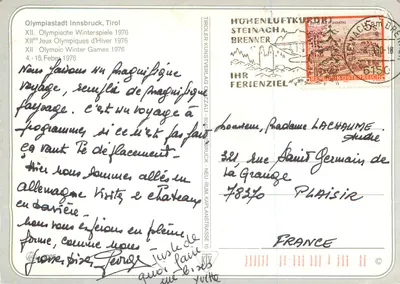 Olympiastadt Innsbruck, Tirol
XII. Olympische Winterspiele 1976
XIIes Jeux Olympiques d'Hiver 1976
XII. Olympic Winter Games 1976
4.-15. Febr. 1976
Nous faisons un magnifique
voyage, remplie de magnifique
paysage. c'est un voyage à
programmer, si ce n'est pas fait
ça vaut le déplacement.
Hier nous sommes allés en
allemagne visiter 2 chateaux
en bavière.
nous vous espérons en pleine
forme, comme nous
Grosses bises, George
juste de
quoi faire
une bises
Yvette
TIROLER KUNSTVERLAG
HÖHENLUFTKURORT
STEINACH
BRENNER
IHR
FERIENZIEL
S 5
Monsieur, Madame LACHAUME
André
321, rue Saint Germain de
La Grange
78370 PLAISIR
FRANCE